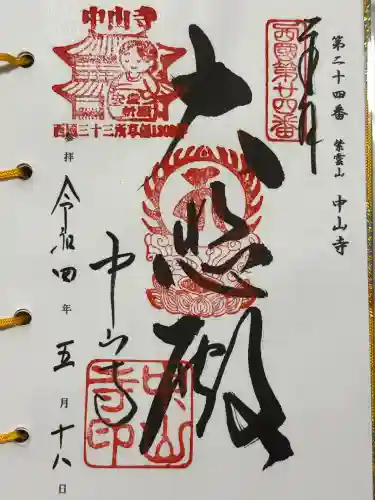 第二十四番 紫雲山 中山寺
奉拝
西國第廿四番
大悲殿
中山寺
安産
祈願
西国三十三所草創1300年
中山寺
中山寺印
参拝 令和四年 五月十八日